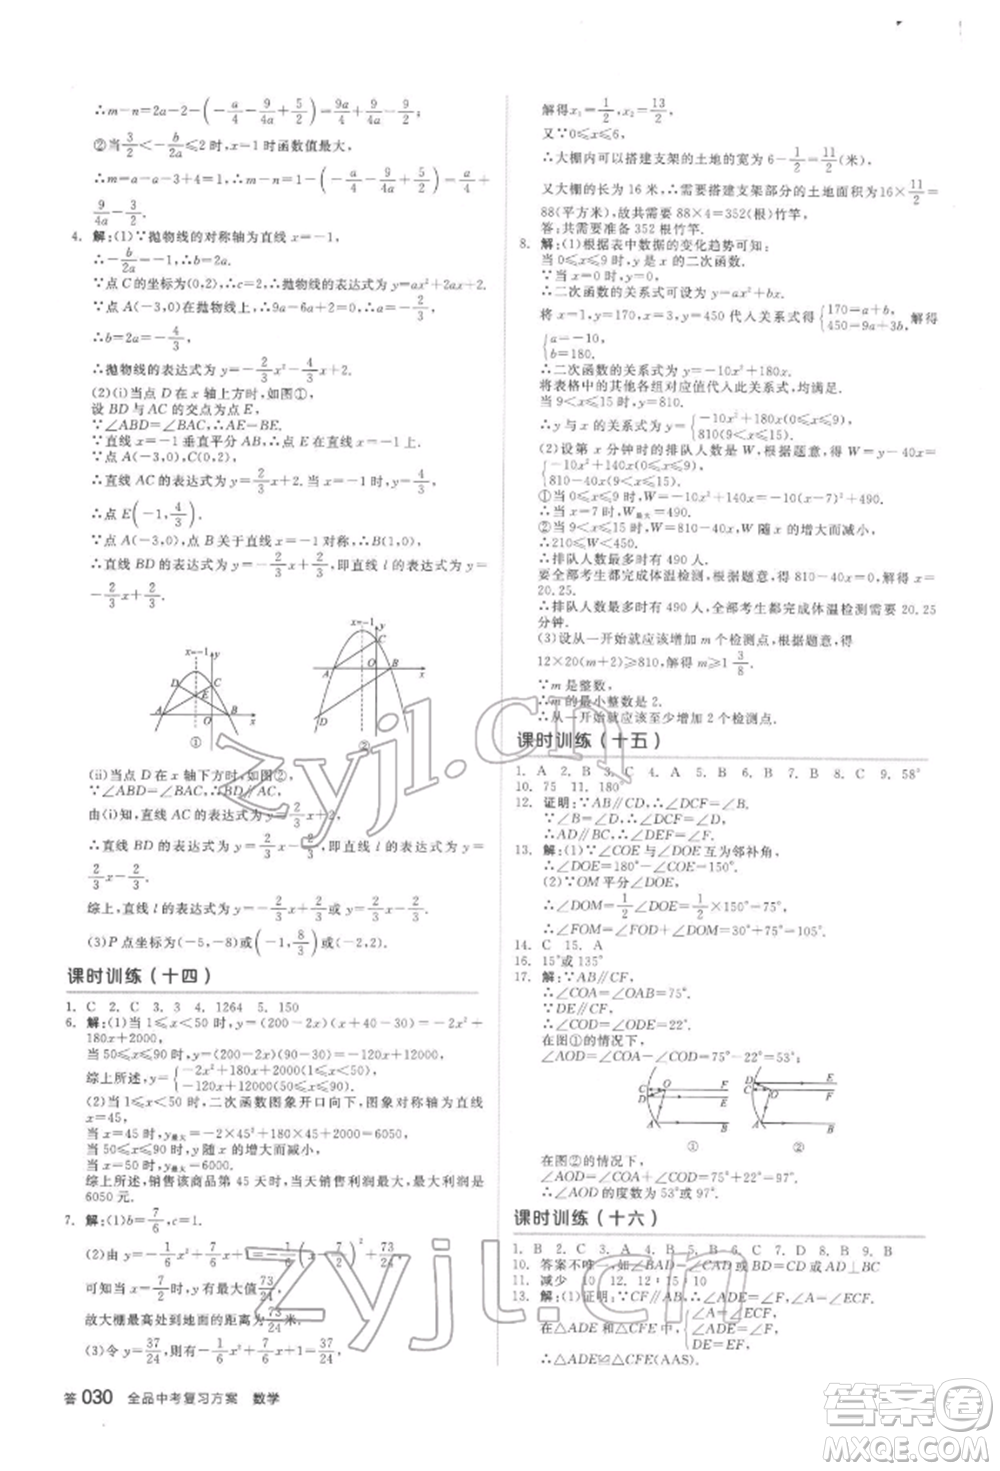 ∴m−n=2a−2−(−a/4−9/4a+5/2)=9a/4+9/4a−9/2.
②当3/2<−b/2a≤2时,x=1时函数值最大,
∴m−n=a−a−3+4=1−(−a/4−9/4a+5/2)=a/4+
9/4a−3/2.
4. 解:(1)∵抛物线的对称轴为直线x=−1,
∴−b/2a=−1,∴b=2a.
∵点C的坐标为(0,2),∴抛物线的表达式为y=ax²+2ax+2.
∵点A(−3,0)在抛物线上,∴9a−6a+2=0,∴a=−2/3,
∴b=2a=−4/3,
∴抛物线的表达式为y=−2/3x²−4/3x+2.
(2)(i)当点D在x轴上方时,如图①,
设BD与AC的交点为点E,
∵∠ABD=∠BAC,∴AE=BE.
∵直线x=−1垂直平分AB,∴点E在直线x=−1上.
∵点A(−3,0),C(0,2),
∴直线AC的表达式为y=2/3x+2.当x=−1时,y=4/3,
∴点E(−1,4/3).
∵点A(−3,0),点B关于直线x=−1对称,∴B(1,0),
∴直线BD的表达式为y=−2/3x+2/3,即直线l的表达式为y=−
2/3x+2/3.
x=−1 y C D E A O B x ①
x=−1 y C A O B x D ②
(ii)当点D在x轴下方时,如图②,
∵∠ABD=∠BAC,∴BD∥AC.
由(i)知,直线AC的表达式为y=2/3x+2,
∴直线BD的表达式为y=2/3x−2/3,即直线l的表达式为y=
2/3x−2/3.
综上,直线l的表达式为y=−2/3x+2/3或y=2/3x−2/3.
(3)P点坐标为(−5,−8)或(−1,8/3).
课时训练(十四)
1. C 2. C 3. 3 4. 1264 5. 150
6. 解:(1)当1≤x<50时,y=(200−2x)(x+40−30)=−2x²+
180x+2000,
当50≤x≤90时,y=(200−2x)(90−30)=−120x+12000,
综上所述,y={−2x²+180x+2000(1≤x<50),
−120x+12000(50≤x≤90).
(2)当1≤x<50时,二次函数图象开口向下,图象对称轴为直线
x=45,
当x=45时,y最大=−2×45²+180×45+2000=6050,
当50≤x≤90时,y随x的增大而减小,
当x=50时,y最大=6000.
综上所述,销售该商品第45天时,当天销售利润最大,最大利润是
6050元.
7. 解:(1)b=7/6,c=1.
(2)由y=−x²+7/6x+1=−(x−7/12)²+
可知当x=7/12时,y有最大值73/24,
故大棚最高处到地面的距离为73/24米.
(3)令y=37/24,则有−x²+7/6x+1=37/24,
解得x₁=1/2,x₂=13/2.
又∵0≤x≤6,
∴大棚内可以搭建支架的土地的宽为6−1/2=11/2(米),
又大棚的长为16米,∴需要搭建支架部分的土地面积为16×11/2=
88(平方米),故共需要88×4=352(根)竹竿.
答:共需要准备352根竹竿.
8. 解:(1)根据表中数据的变化趋势可知:
当0≤x≤9时,y是x的二次函数.
∵当x=0时,y=0,
∴二次函数的关系式可设为y=ax²+bx.
将x=1,y=170,x=3,y=450代入关系式{170=a+b,
450=9a+3b,解得
{a=−10,
b=180.
∴二次函数的关系式为y=−10x²+180x.
将表格中的其他各组对应值代入此关系式,均满足.
当9<x≤15时,y=810.
∴y与x的关系式为y={−10x²+180x(0≤x≤9),
810(9<x≤15).
(2)设第x分钟时的排队人数是W,根据题意,得W=y−40x=
{−10x²+140x(0≤x≤9),
810−40x(9<x≤15).
①当0≤x≤9时,W=−10x²+140x=−10(x−7)²+490,
∴当x=7时,W最大=490.
②当9<x≤15时,W=810−40x,W随x的增大而减小,
∴210≤W<450.
∴排队人数最多时有490人.
要全部考生都完成体温检测,根据题意,得810−40x=0,解得x=
20.25.
∴排队人数最多时有490人,全部考生都完成体温检测需要20.25
分钟.
(3)设从一开始就应该增加m个检测点,根据题意,得
12×20(m+2)≥810,解得m≥1 3/8.
∵m是整数,
∴m的最小整数是2.
∴从一开始就应该至少增加2个检测点.
课时训练(十五)
1. A 2. B 3. B 4. A 5. B 6. B 7. B 8. C 9. 58°
10. 75 11. 180°
12. 证明:∵AB∥CD,∴∠DCF=∠B.
∵∠B=∠D,∴∠DCF=∠D,
∴AD∥BC,∴∠DEF=∠F.
13. 解:(1)∵∠COE与∠DOE互为邻补角,
∴∠DOE=180°−∠COE=150°.
(2)∵OM平分∠DOE,
∴∠DOM=1/2∠DOE=1/2×150°=75°,
∴∠FOM=∠DOF+∠DOM=30°+75°=105°.
14. C 15. A
16. 15°或135°
17. 解:∵AB∥CF,
∴∠COA=∠OAB=75°.
∵DE∥CF,
∴∠COD=∠ODE=22°.
在图①的情况下,
∠AOD=∠COA−∠COD=75°−22°=53°.
D O E C F A B ①
D E C O F A B ②
在图②的情况下,
∠AOD=∠COA+∠COD=75°+22°=97°.
∴∠AOD的度数为53°或97°.
课时训练(十六)
1. B 2. C 3. A 4. C 5. B 6. B 7. D 8. B 9. B
10. 答案不唯一,如∠BAD=∠CAD或BD=CD或AD⊥BC
11. 减少 10 12.
13. 解:(1)证明:∵CF∥AB,∴∠ADE=∠F,∠A=∠ECF.
在△ADE和△CFE中,{∠A=∠ECF,
∠ADE=∠F,
DE=EF,
∴△ADE≌△CFE(AAS).
答030 全品中考复习方案 数学
zyjl.cn
zyjl.cn
答案圈
MXQE.COM